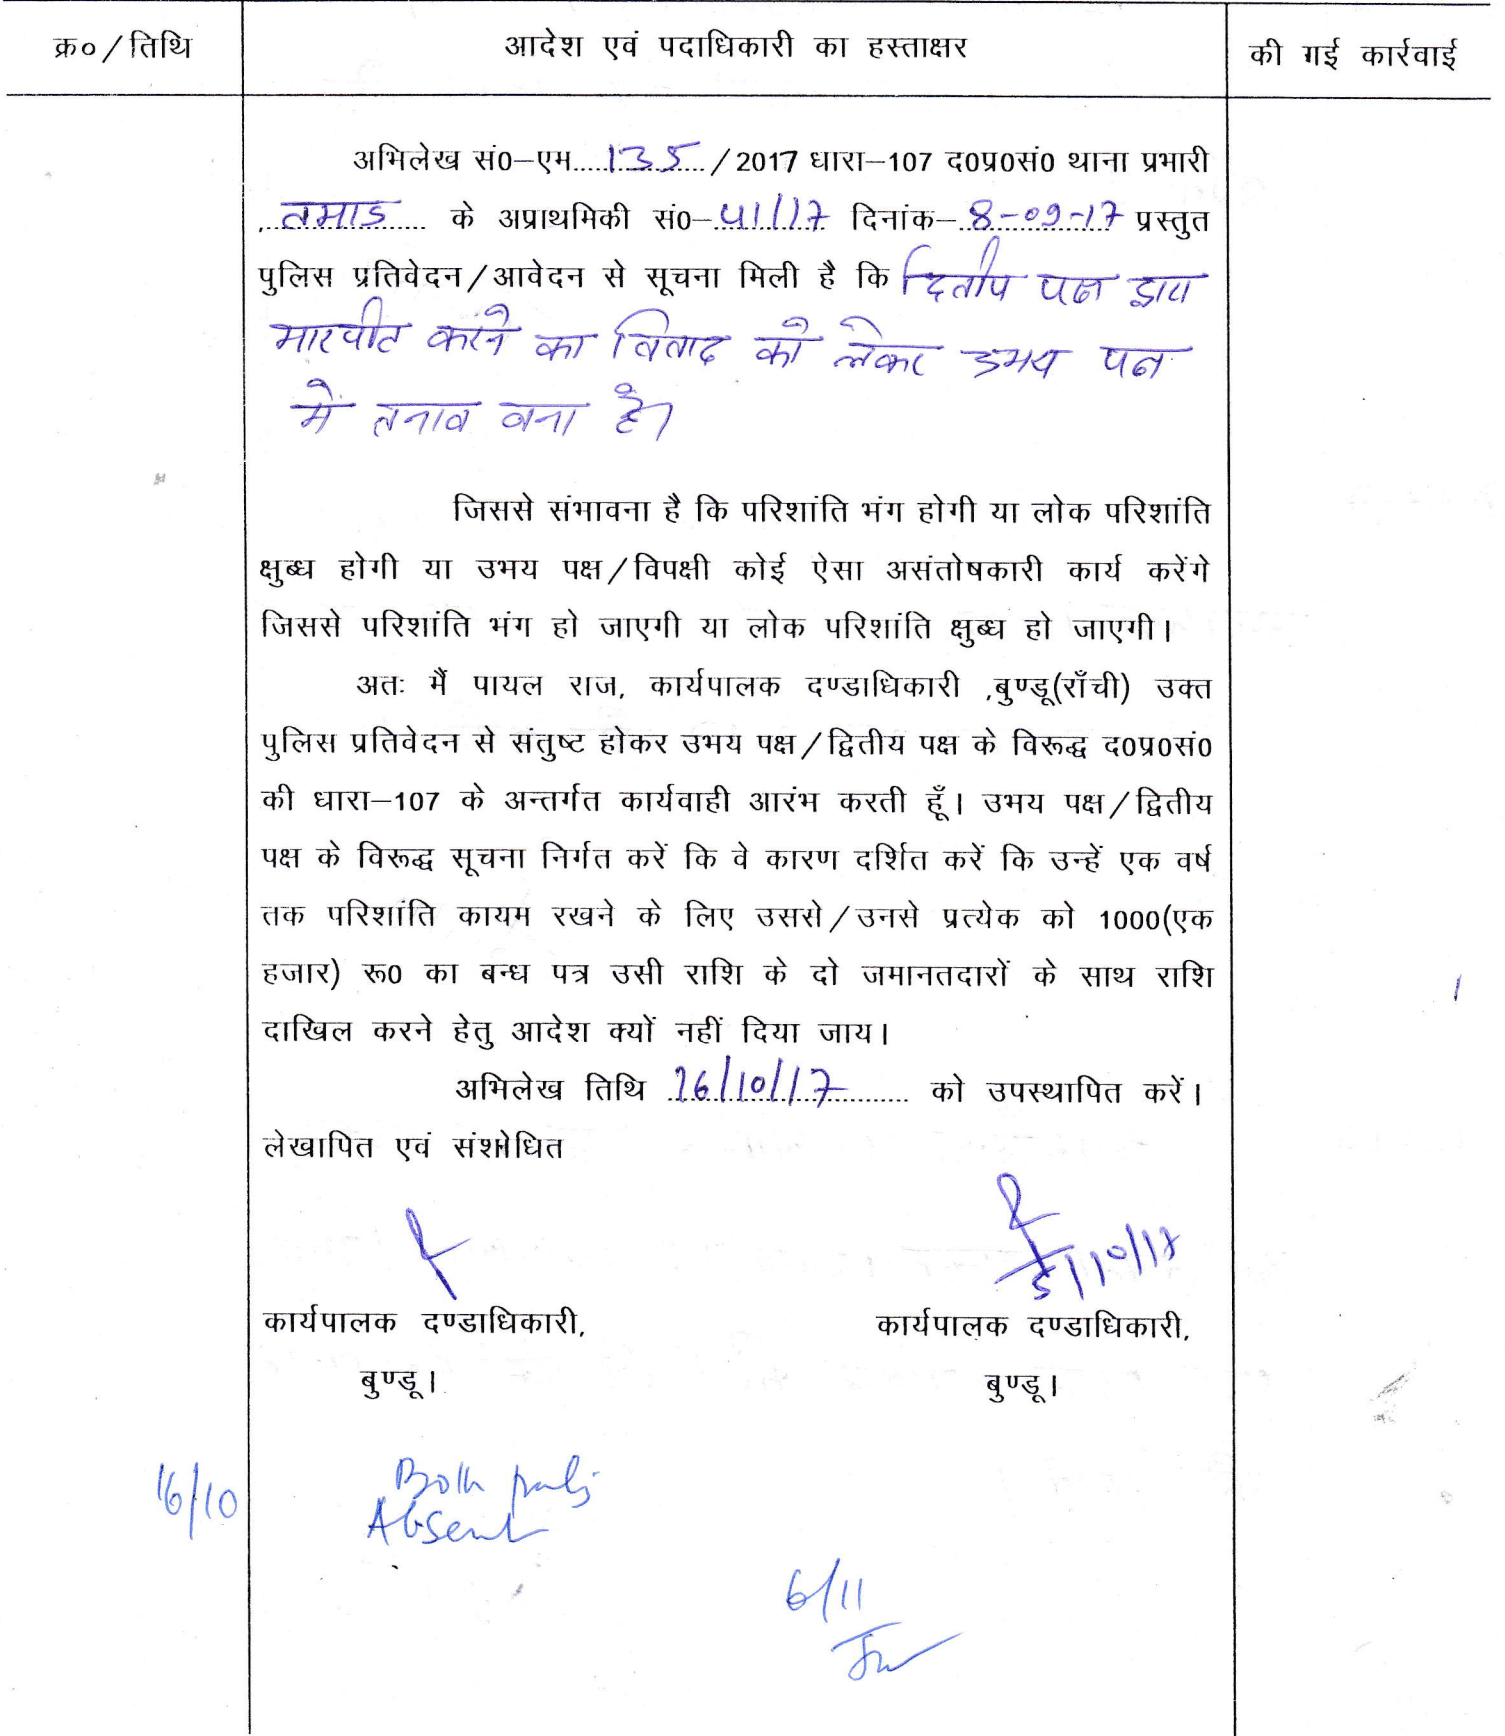 क्र० / तिथि
आदेश एवं पदाधिकारी का हस्ताक्षर
की गई कार्रवाई
अभिलेख सं0–एम....135..../2017 धारा–107 द0प्र0सं0 थाना प्रभारी
तमाड़ के अप्राथमिकी सं0–41/17 दिनांक–8-09-17 प्रस्तुत
पुलिस प्रतिवेदन/आवेदन से सूचना मिली है कि द्वितीय पक्ष द्वारा
मारपीट करने का विवाद को लेकर उभय पक्ष
में तनाव बना है।
जिससे संभावना है कि परिशांति भंग होगी या लोक परिशांति
क्षुब्ध होगी या उभय पक्ष/विपक्षी कोई ऐसा असंतोषकारी कार्य करेंगे
जिससे परिशांति भंग हो जाएगी या लोक परिशांति क्षुब्ध हो जाएगी।
अतः मैं पायल राज, कार्यपालक दण्डाधिकारी ,बुण्डू(राँची) उक्त
पुलिस प्रतिवेदन से संतुष्ट होकर उभय पक्ष/द्वितीय पक्ष के विरूद्ध द0प्र0सं0
की धारा–107 के अन्तर्गत कार्यवाही आरंभ करती हूँ। उभय पक्ष/द्वितीय
पक्ष के विरूद्ध सूचना निर्गत करें कि वे कारण दर्शित करें कि उन्हें एक वर्ष
तक परिशांति कायम रखने के लिए उससे/उनसे प्रत्येक को 1000(एक
हजार) रू0 का बन्ध पत्र उसी राशि के दो जमानतदारों के साथ राशि
दाखिल करने हेतु आदेश क्यों नहीं दिया जाय।
अभिलेख तिथि 16/10/17 को उपस्थापित करें।
लेखापित एवं संशोधित
5/10/17
कार्यपालक दण्डाधिकारी,
कार्यपालक दण्डाधिकारी,
बुण्डू।
बुण्डू।
16/10
Both
Absent
6/11